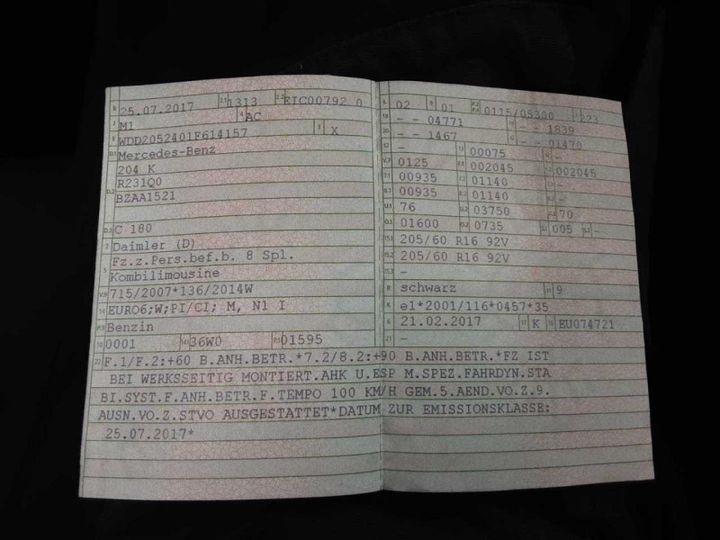 25.07.2017 1313 EIC00792 0
M1 AC
WDD2052401F614157 X
Mercedes-Benz
204 K
R231Q0
BZAA1521
C 180
Daimler (D)
Fz.z.Pers.bef.b. 8 Spl.
Kombilimousine
715/2007*136/2014W
EURO6;W;PI/CI; M, N1 I
Benzin
0001 36W0 01595
02 01 0115/05300 223
-- 04771 -- 1839
-- 1467 -- 01470
- 00075 -
0125 002045 002045
00935 01140 -
00935 01140 -
76 03750 70
01600 0735 005 -
205/60 R16 92V
205/60 R16 92V
-
schwarz 9
e1*2001/116*0457*35
21.02.2017 K EU074721
-
22 F.1/F.2:+60 B.ANH.BETR.*7.2/8.2:+90 B.ANH.BETR.*FZ IST
BEI WERKSSEITIG MONTIERT.AHK U.ESP M.SPEZ.FAHRDYN.STA
BI.SYST.F.ANH.BETR.F.TEMPO 100 KM/H GEM.5.AEND.VO.Z.9.
AUSN.VO.Z.STVO AUSGESTATTET*DATUM ZUR EMISSIONSKLASSE:
25.07.2017*